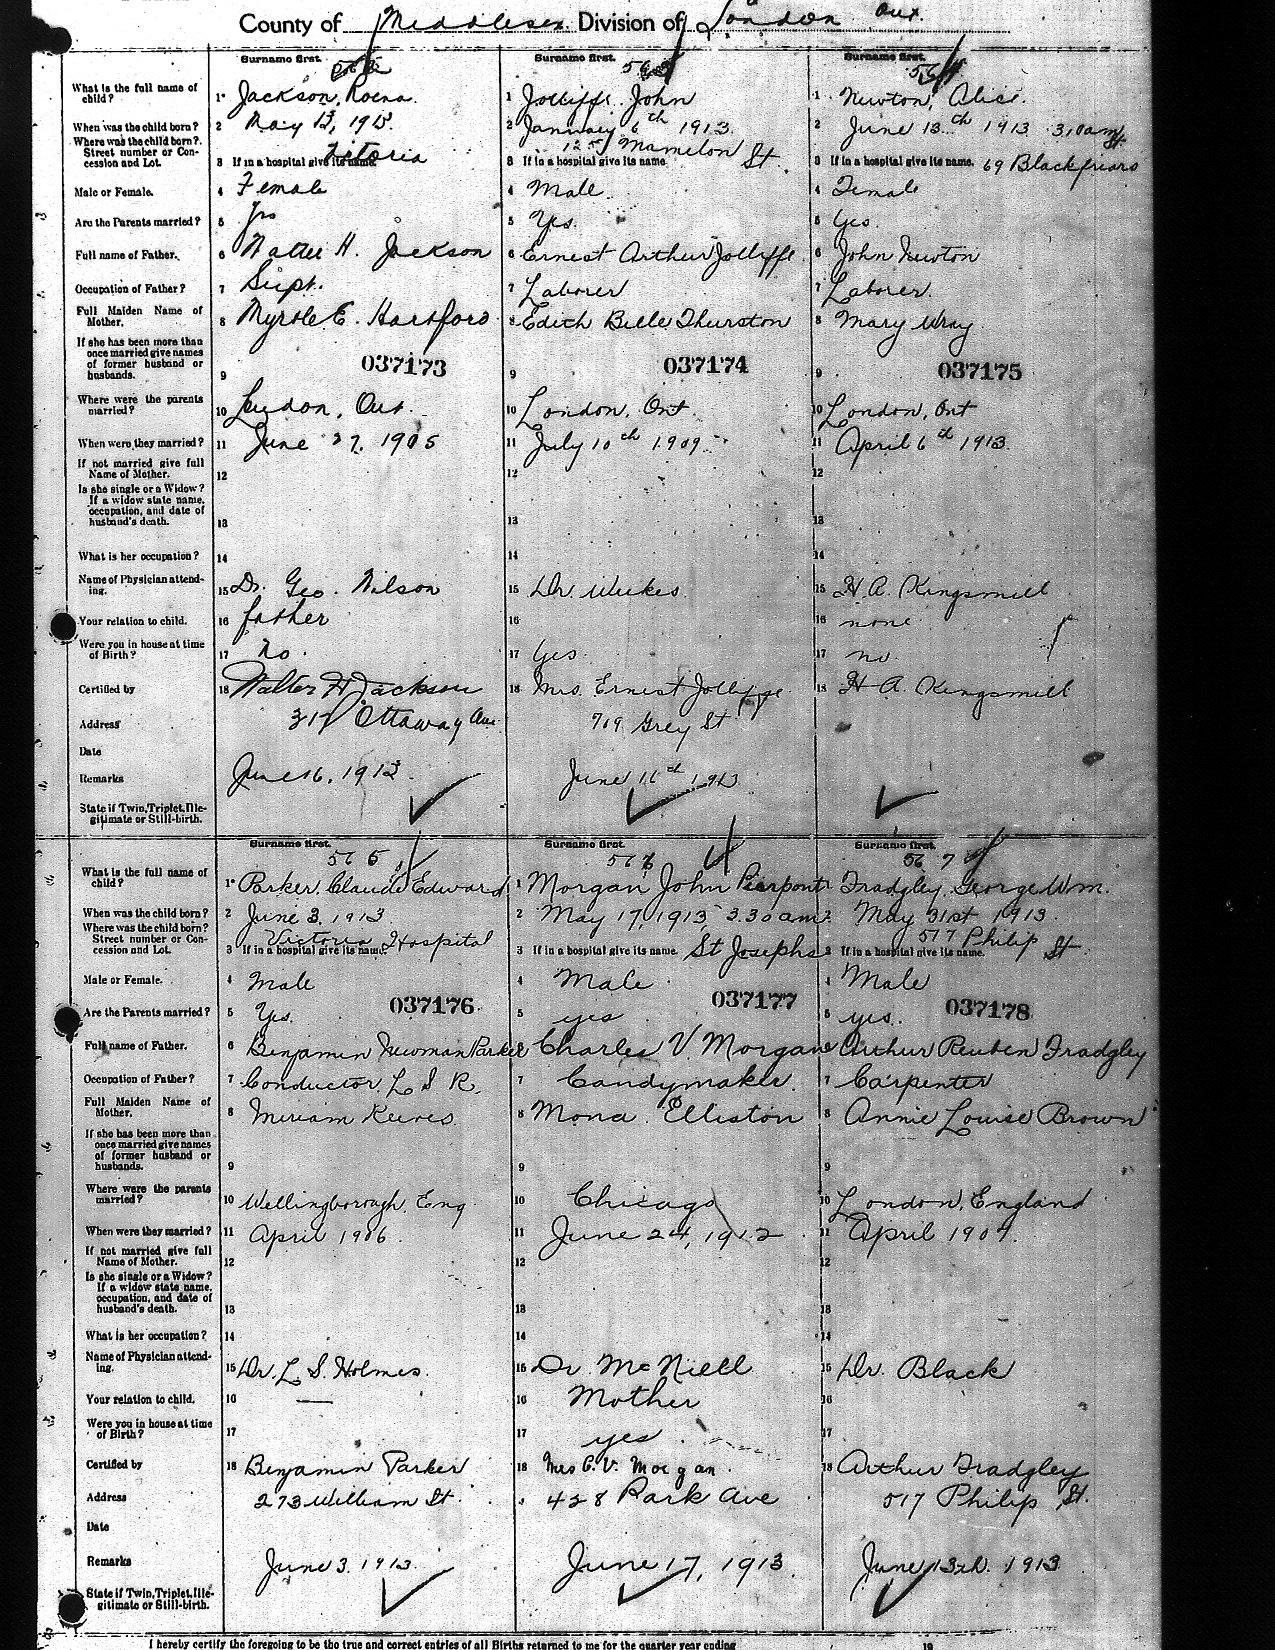 County of Middlesex Division of London Ont.
Surname first. Surname first. Surname first.
562 563 564
What is the full name of child? 1 Jackson, Roena. 1 Jolliffe John 1 Newton, Alice.
When was the child born? 2 May 13, 1913. 2 January 6th 1913. 2 June 13th 1913 3.10 am
Where was the child born? Street number or Concession and Lot. 3 If in a hospital give its name. Vitoria 3 If in a hospital give its name. Mamelon St. 3 If in a hospital give its name. 69 Blackfriars St
Male or Female. 4 Female 4 Male. 4 Female
Are the Parents married? 5 Yes 5 Yes. 5 Yes.
Full name of Father. 6 Walter H. Jackson 6 Ernest Arthur Jolliffe 6 John Newton
Occupation of Father? 7 Supt. 7 Laborer 7 Laborer.
Full Maiden Name of Mother. 8 Myrtle E. Hartford 8 Edith Belle Thurston 8 Mary Wray
If she has been more than once married give names of former husband or husbands. 9 9 9
037173 037174 037175
Where were the parents married? 10 London, Ont. 10 London, Ont. 10 London, Ont
When were they married? 11 June 27, 1905 11 July 10th 1909 11 April 6th 1913.
If not married give full Name of Mother. 12 12 12
Is she single or a Widow? If a widow state name, occupation, and date of husband's death. 13 13 13
What is her occupation? 14 14 14
Name of Physician attending. 15 Dr. Geo. Wilson 15 Dr. Weekes 15 H. A. Kingsmill
Your relation to child. 16 father 16 16 none
Were you in house at time of Birth? 17 no. 17 Yes. 17 no.
Certified by 18 Walter H Jackson 18 Mrs. Ernest Jolliffe 18 H A. Kingsmill
Address 317 Ottaway Ave 719 Grey St
Date
Remarks June 16, 1913. June 16th 1913
State if Twin, Triplet, Illegitimate or Still-birth.
Surname first. Surname first. Surname first.
565 566 567
What is the full name of child? 1 Parker, Claude Edward 1 Morgan John Pierpont 1 Fradgley, George Wm.
When was the child born? 2 June 3, 1913. 2 May 17, 1913, 3.30 am 2 May 31st 1913.
Where was the child born? Street number or Concession and Lot. 3 If in a hospital give its name. Victoria Hospital 3 If in a hospital give its name. St Josephs 3 If in a hospital give its name. 517 Philip St
Male or Female. 4 Male 4 Male 4 Male
037176 037177 037178
Are the Parents married? 5 Yes. 5 yes 5 yes.
Full name of Father. 6 Benjamin Newman Parker 6 Charles V. Morgan 6 Arthur Reuben Fradgley
Occupation of Father? 7 Conductor L S R. 7 Candymaker. 7 Carpenter
Full Maiden Name of Mother. 8 Miriam Reeves. 8 Mona Elliston 8 Annie Louise Brown
If she has been more than once married give names of former husband or husbands. 9 9 9
Where were the parents married? 10 Wellingborough, Eng 10 Chicago 10 London, England
When were they married? 11 April 1906. 11 June 24, 1912 11 April 1909.
If not married give full Name of Mother. 12 12 12
Is she single or a Widow? If a widow state name, occupation, and date of husband's death. 13 13 13
What is her occupation? 14 14 14
Name of Physician attending. 15 Dr. L. S. Holmes. 15 Dr. McNiell 15 Dr. Black
Your relation to child. 16 — 16 Mother 16
Were you in house at time of Birth? 17 17 yes 17
Certified by 18 Benjamin Parker 18 Mrs C. V. Morgan. 18 Arthur Fradgley
Address 273 William St. 428 Park Ave 517 Philip St.
Date
Remarks June 3. 1913. June 17, 1913. June 13th. 1913
State if Twin, Triplet, Illegitimate or Still-birth.
I hereby certify the foregoing to be the true and correct entries of all Births returned to me for the quarter year ending 19